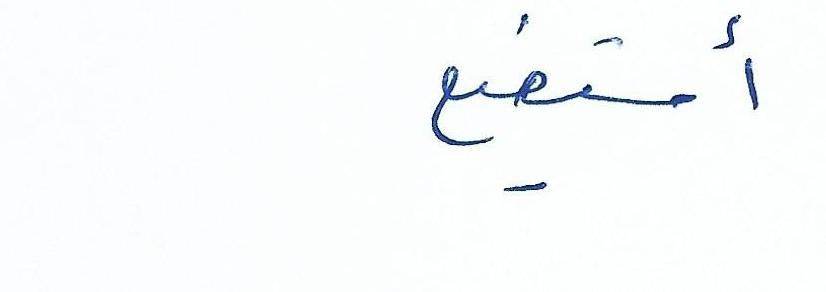 أستطيع